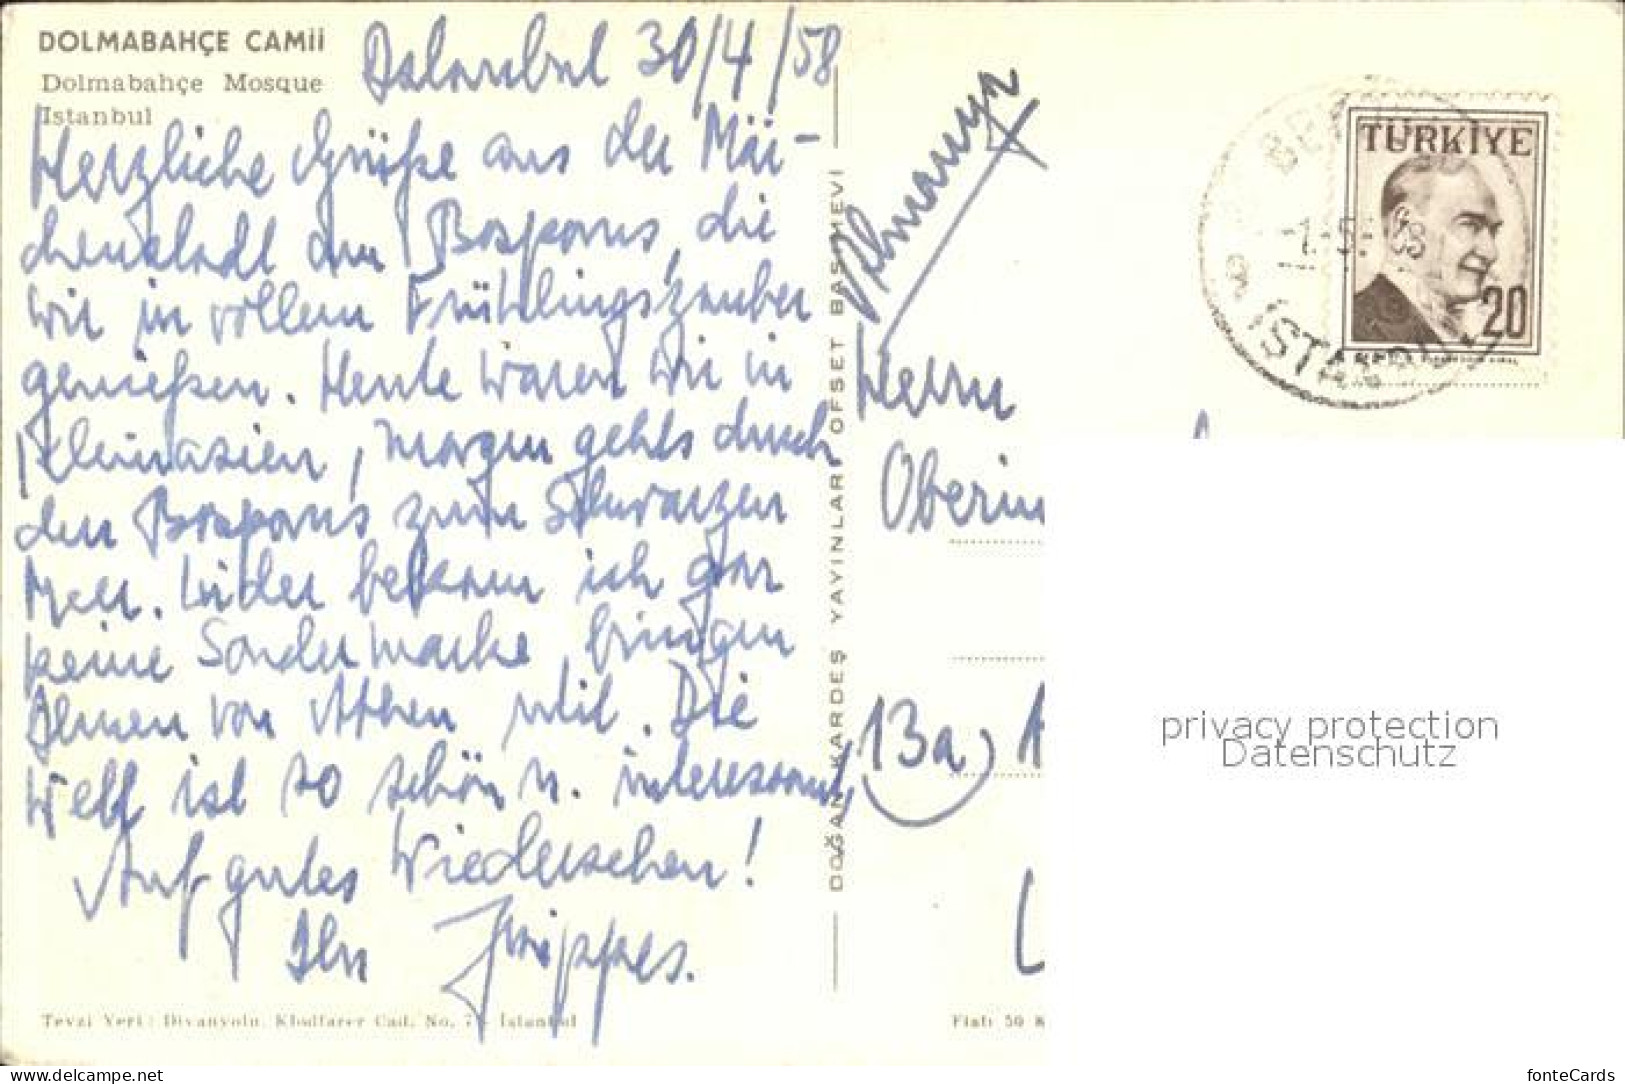 DOLMABAHÇE CAMİİ
Dolmabahçe Mosque
İstanbul
Istanbul 30/4/58
Herzliche Grüße aus der Mär-
chenstadt am Bosporus, die
wir in vollem Frühlingszauber
genießen. Heute waren wir in
Kleinasien, morgen gehts durch
den Bosporus zum Schwarzen
Meer. Leider bekam ich gar
keine Sondermarke, bringen
Ihnen von Athen mit. Die
Welt ist so schön u. interessant,
Auf gutes Wiedersehen!
Ihr
Tevzi Yeri: Divanyolu, Klodfarer Cad. No. 7 - İstanbul
DOĞAN KARDEŞ YAYINLARI OFSET BASIMEVİ
Fiatı 50 K
Herrn
Oberin
13a)
TÜRKİYE
20
İSTANBUL
privacy protection
Datenschutz
delcampe.net
fonteCards